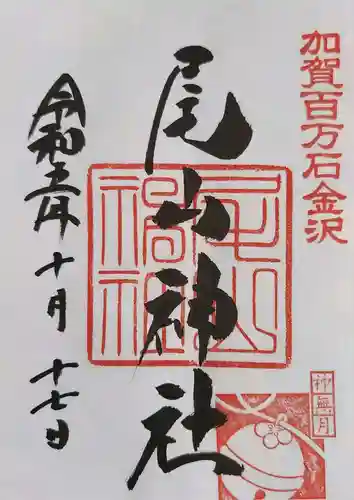 加賀百万石金沢
尾山神社
尾山神社
令和五年
十月
十七日
神無月